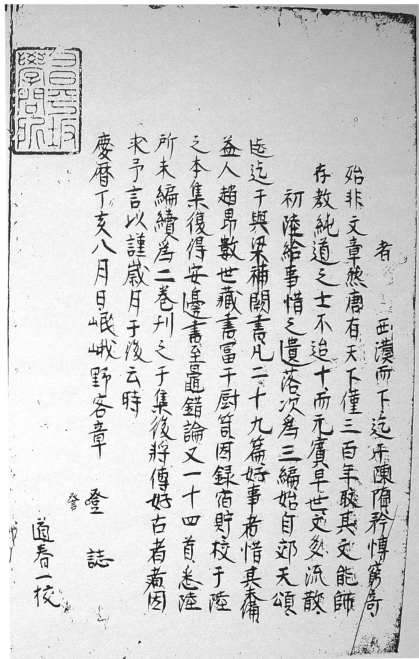 者 西漢而下迄乎陳隋矜博窮奇
殆非文章然唐有天下僅三百年其文能師
存教純道之士不迨十而元賓早世文多流散
初陸給事惜之遺落次為三編始自郊天頌
迄于與梁補闕書凡二十九篇好事者惜其未備
益人趙昂數世藏書富于厨笥因録宿貯校于陸
之本集復得安邊書至鼂錯論又一十四首悉陸
所未編續為二卷刊之于集後將傳好古者因
求予言以謹歲月于後云時
慶曆丁亥八月日岷峨野客章 登 誌
詧
道春一校
昌平坂
學問所